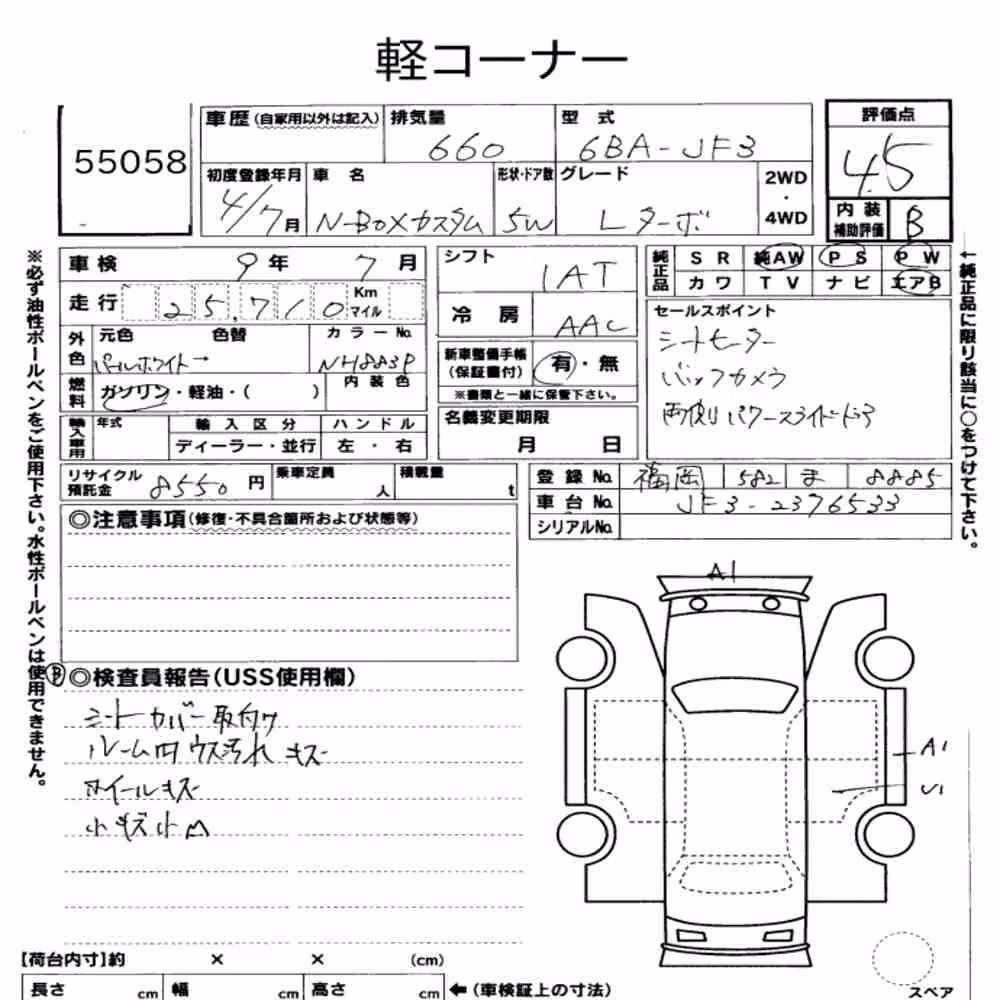 軽コーナー
55058
車歴 (自家用以外は記入) 排気量 型式 評価点
660 6BA-JF3 4.5
初度登録年月 車名 形状・ドア数 グレード 2WD・4WD 内装補助評価
4/7月 N-BOXカスタム 5W Lターボ B
車検 9年 7月 シフト 1AT
純正品 SR 純AW PS PW
カワ TV ナビ エアB
走行 25,710 Km マイル
冷房 AAC
セールスポイント
シートヒーター
バックカメラ
両側パワースライドドア
外色 元色 色替 カラーNo.
パールホワイト→ NH883P
新車整備手帳(保証書付) 有・無
※書類と一緒に保管下さい。
燃料 ガソリン・軽油・( ) 内装色
名義変更期限
月 日
輸入車用 年式 輸入区分 ハンドル
ディーラー・並行 左・右
リサイクル預託金 8550円 乗車定員 人 積載量 t
登録No. 福岡 582 ま 8885
車台No. JF3-2376533
シリアルNo.
◎注意事項(修復・不具合箇所および状態等)
◎検査員報告(USS使用欄)
シートカバー取付け
ルーム内ウス汚れ キズ
ホイールキズ
小キズ小凹
A1
A1
U1
※必ず油性ボールペンをご使用下さい。水性ボールペンは使用できません。
←純正品に限り該当に○をつけて下さい。
【荷台内寸】約 × × (cm)
長さ cm 幅 cm 高さ cm ←(車検証上の寸法)
スペア